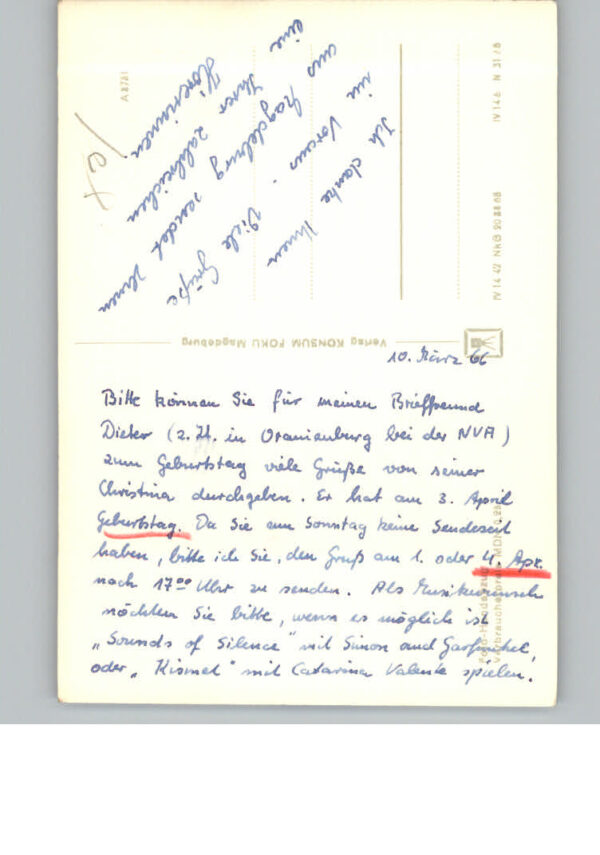 10. März 66
Bitte können Sie für meinen Brieffreund
Dieter (z. Zt. in Oranienburg bei der NVA)
zum Geburtstag viele Grüße von seiner
Christina durchgeben. Er hat am 3. April
Geburtstag. Da Sie am Sonntag keine Sendezeit
haben, bitte ich Sie, den Gruß am 1. oder 4. Apr.
nach 17⁰⁰ Uhr zu senden. Als Musikwunsch
möchten Sie bitte, wenn es möglich ist
„Sounds of Silence" mit Simon and Garfunkel,
oder „Kismet" mit Catarina Valente spielen.
Ich danke Ihnen
im Voraus. Viele Grüße
aus Magdeburg sendet Ihnen
eine Ihrer zahlreichen
Hörerinnen
Verlag KONSUM FOKU Magdeburg
A 8781
IV 14 6 N 31/8
IV 14 42 NkG 20 88 65
Verbraucherpreis MDN 0,25